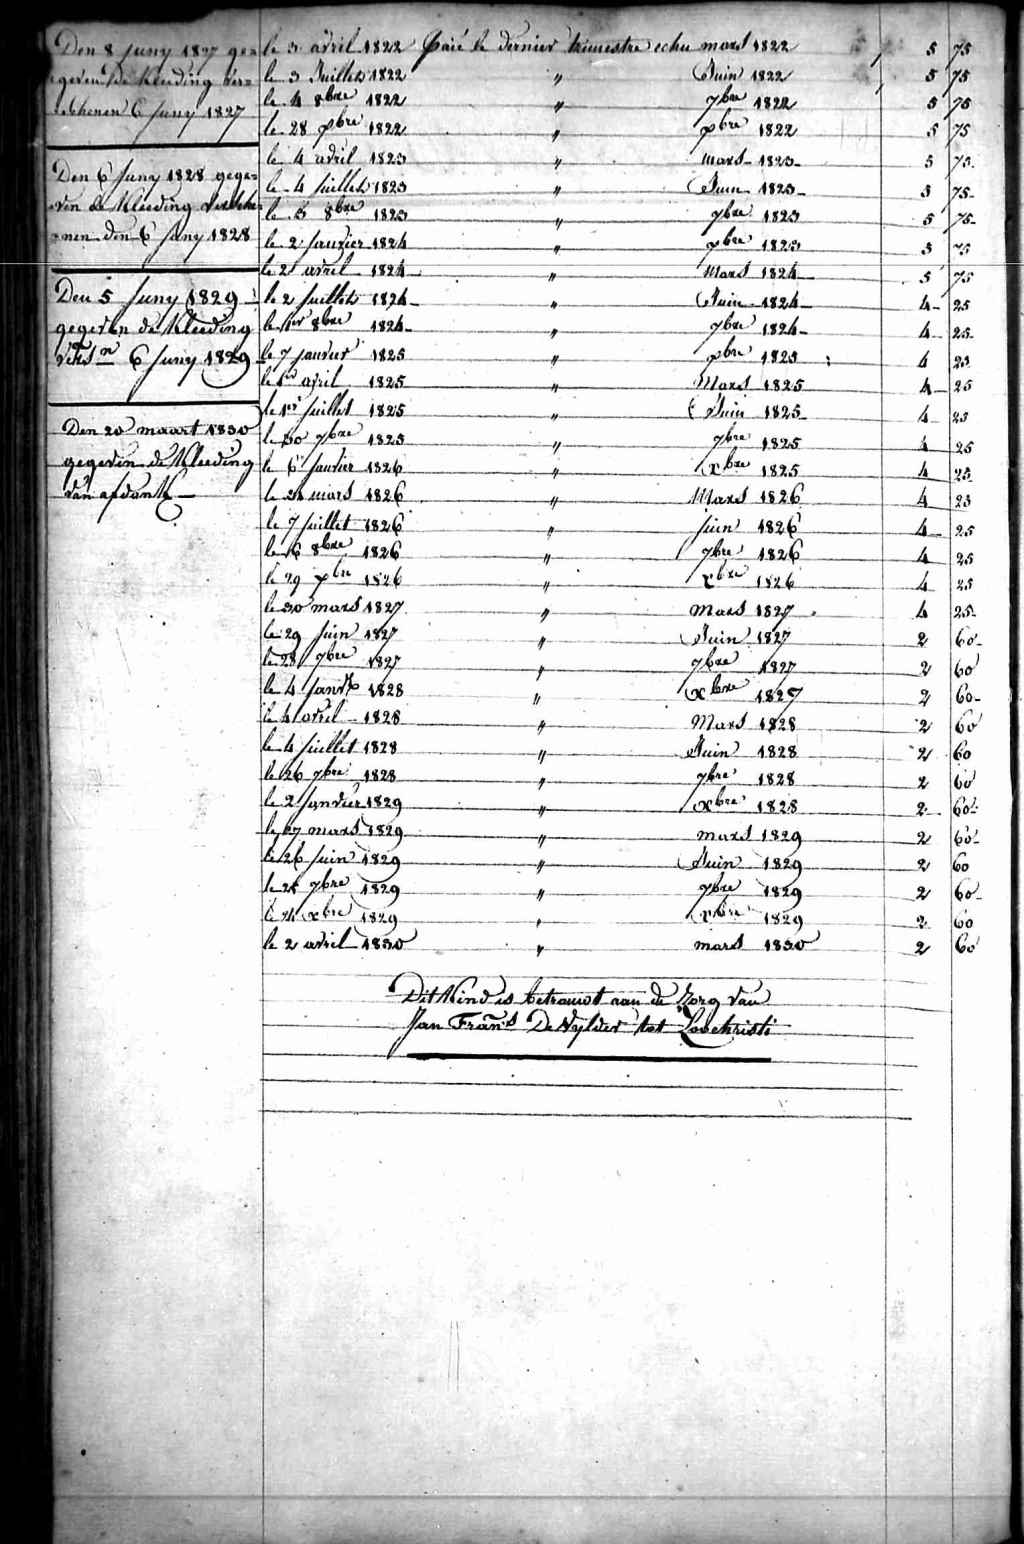 Den 8 Juny 1827 ge=
geven de Kleeding ver=
schenen 6 Juny 1827
Den 6 Juny 1828 gege=
ven de Kleeding versche=
nen den 6 Juny 1828
Den 5 Juny 1829
gegeven de Kleeding
6 Juny 1829
Den 20 maart 1830
gegeven de Kleeding
van afdank
le 3 avril 1822 Paié le dernier trimestre echu mars 1822 5 75
le 3 Juillet 1822 " Juin 1822 5 75
le 4 8bre 1822 " 7bre 1822 5 75
le 28 xbre 1822 " xbre 1822 5 75
le 4 avril 1823 " mars 1823 5 75
le 4 Juillet 1823 " Juin 1823 5 75
le 5 8bre 1823 " 7bre 1823 5 75
le 2 Janvier 1824 " xbre 1823 5 75
le 2 avril 1824 " Mars 1824 5 75
le 2 Juillet 1824 " Juin 1824 4 25
le 1er 8bre 1824 " 7bre 1824 4 25
le 7 janvier 1825 " xbre 4 25
le 1er avril 1825 " Mars 1825 4 25
le 1er Juillet 1825 " Juin 1825 4 25
le 30 7bre 1825 " 7bre 1825 4 25
le 6 Janvier 1826 " xbre 1825 4 25
le 31 mars 1826 " Mars 1826 4 25
le 7 Juillet 1826 " juin 1826 4 25
le 6 8bre 1826 " 7bre 1826 4 25
le 29 xbre 1826 " xbre 1826 4 25
le 30 mars 1827 " Mars 1827 4 25
le 29 Juin 1827 " Juin 1827 2 60
le 28 7bre 1827 " 7bre 1827 2 60
le 4 Janvr 1828 " xbre 1827 2 60
le 4 avril 1828 " Mars 1828 2 60
le 4 Juillet 1828 " Juin 1828 2 60
le 26 7bre 1828 " 7bre 1828 2 60
le 2 Janvier 1829 " xbre 1828 2 60
le 27 mars 1829 " mars 1829 2 60
le 26 Juin 1829 " Juin 1829 2 60
le 7bre 1829 " 7bre 1829 2 60
le 24 xbre 1829 " xbre 1829 2 60
le 2 avril 1830 " mars 1830 2 60
Dit Kind is betrouwt aan de Zorg van
Jan Frans De Wylder tot Loochristi